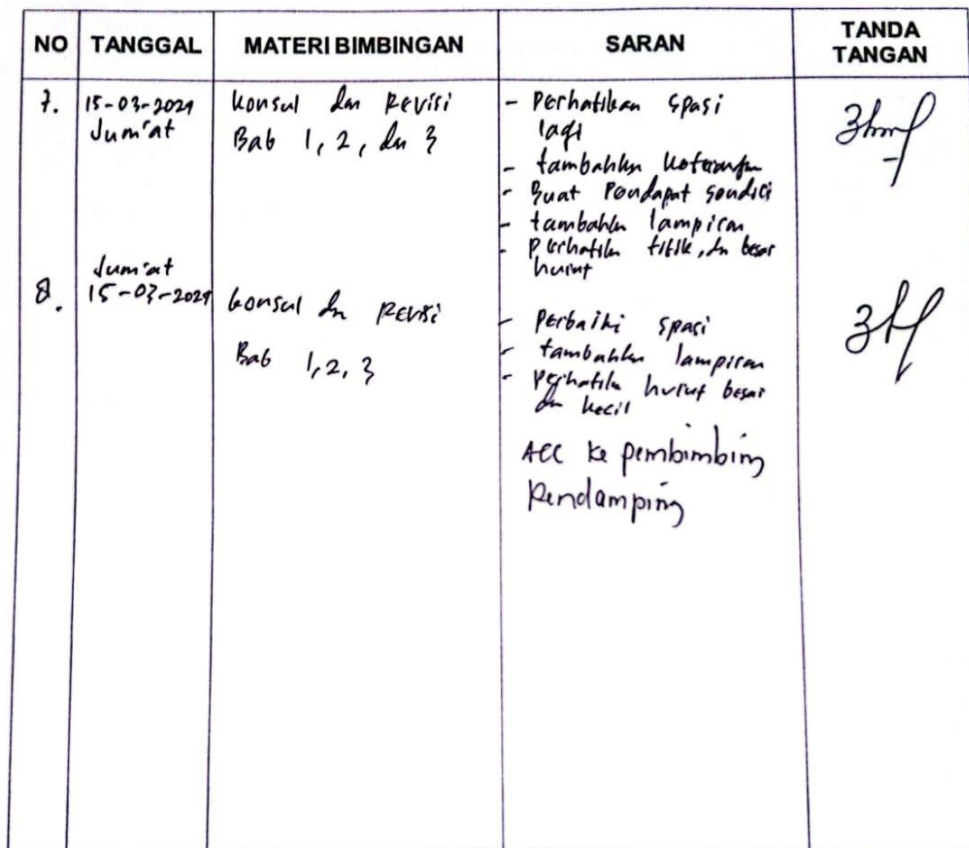 NO TANGGAL MATERI BIMBINGAN SARAN TANDA TANGAN
7. 15-03-2024 Konsul dan Revisi - Perhatikan spasi
Jum'at Bab 1, 2, dan 3 lagi
- tambahkan
- Buat Pendapat sendiri
- tambahkan lampiran
- Perhatikan titik, dan besar
huruf
Jum'at
8. 15-03-2024 konsul dan Revisi - Perbaiki spasi
Bab 1, 2, 3 - tambahkan lampiran
- Perhatikan huruf besar
dan kecil
ACC ke pembimbing
Pendamping